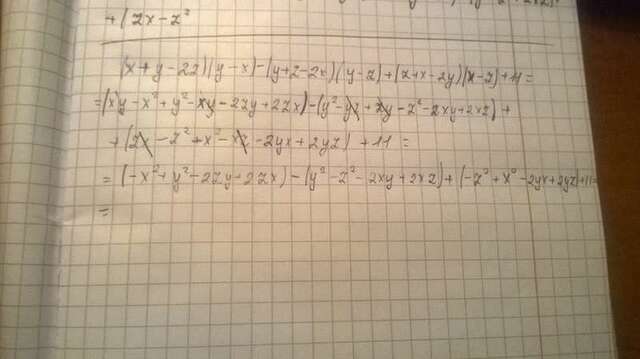 +(zx-z²
(x+y-2z)(y-x)-(y+z-2x)(y-z)+(z+x-2y)(x-z)+11=
=(xy-x²+y²-xy-2zy+2zx)-(y²-yz+zy-z²-2xy+2xz)+
+(zx-z²+x²-xz-2yx+2yz)+11=
=(-x²+y²-2zy+2zx)-(y²-z²-2xy+2xz)+(-z²+x²-2yx+2yz)+11=
=